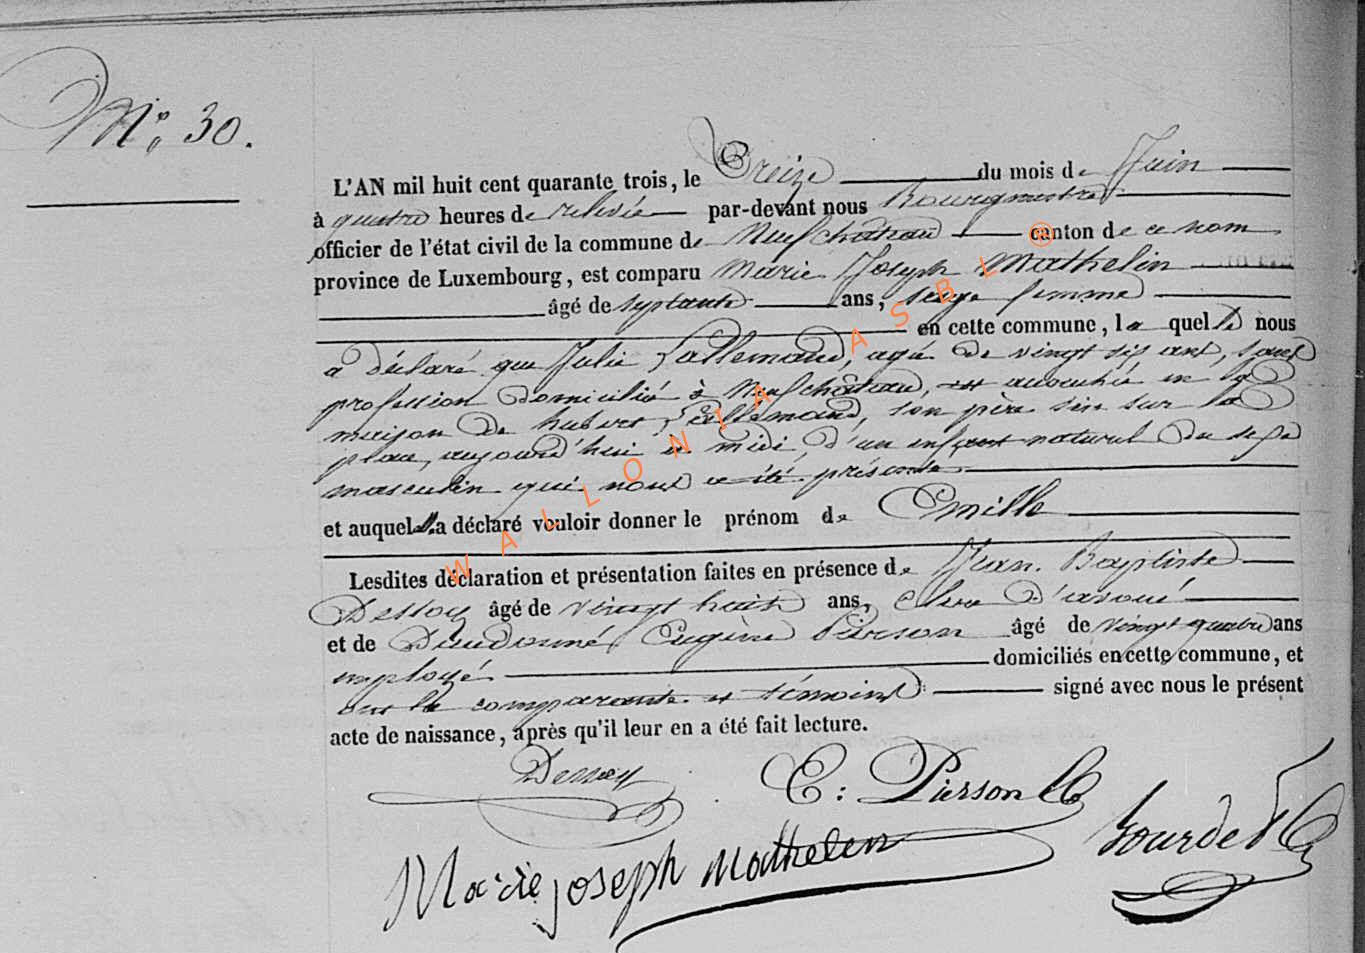 N° 30.
L'AN mil huit cent quarante trois, le Treize du mois de Juin
à quatre heures de relevée par-devant nous Bourgmestre
officier de l'état civil de la commune de Neufchâteau canton de ce nom
province de Luxembourg, est comparu Marie Joseph Mathelin
âgé de septante ans, sage femme
en cette commune, la quelle nous
a déclaré que Julie Lallemand, agée de vingt six ans, sans
profession domiciliée à Neufchâteau, est accouchée en la
maison de hubert Lallemand, son père sise sur la
place, aujourd'hui à midi, d'un enfant naturel du sexe
masculin qui nous a été présenté
et auquel elle a déclaré vouloir donner le prénom de Emille
Lesdites déclaration et présentation faites en présence de Jean Baptiste
Dessoy âgé de vingt huit ans, clerc d'avoué
et de Dieudonné Eugène Pierson âgé de vingt quatre ans
employé domiciliés en cette commune, et
ont la comparante et témoins signé avec nous le présent
acte de naissance, après qu'il leur en a été fait lecture.
Dessoy
E: Pierson
Marie joseph Mathelin
WALLONIA ASBL ®